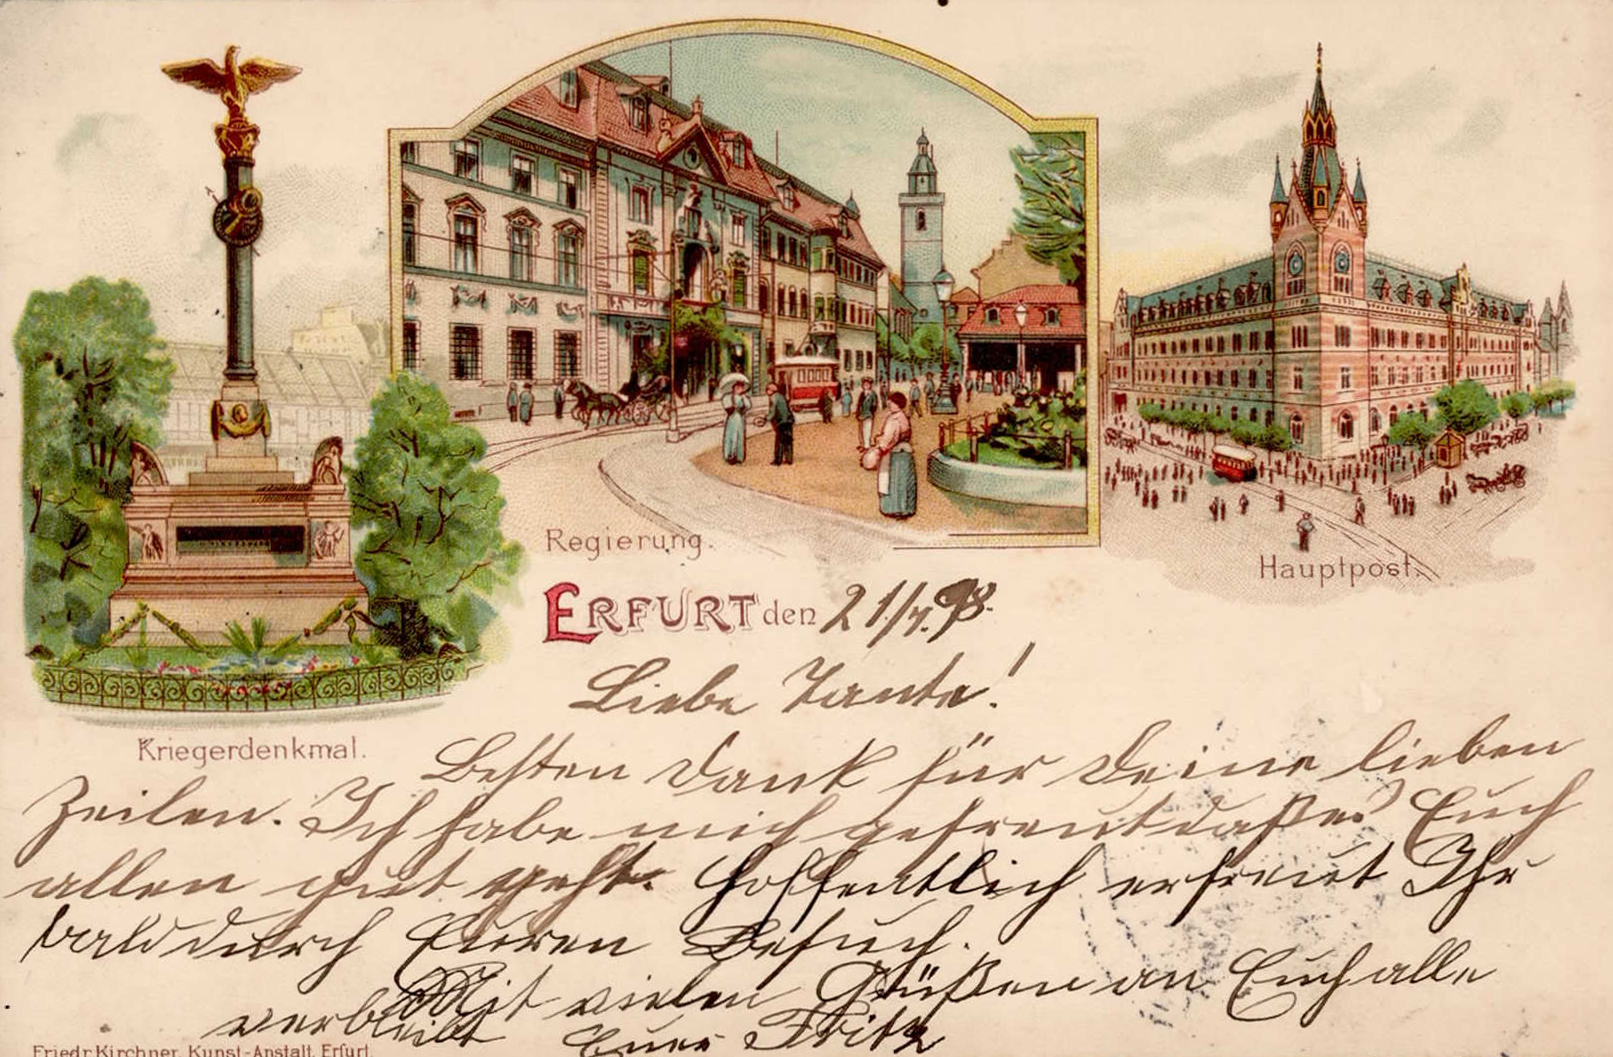 Regierung.
Hauptpost.
ERFURT den 21/7. 98.
Kriegerdenkmal.
Liebe Tante!
Besten Dank für Deine lieben
Zeilen. Ich habe mich gefreut daß es Euch
allen gut geht. Hoffentlich erfreut Ihr
bald durch Euren Besuch.
Mit vielen Grüßen an Euch alle
verbleibt Euer Fritz
Friedr. Kirchner, Kunst-Anstalt, Erfurt.